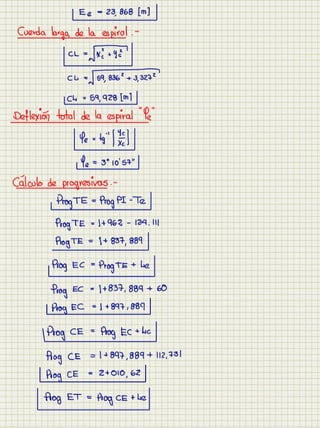 Ee = 23,868 [m]
Cuerda larga de la espiral.-
CL = √Xc² + Yc²
CL = √59,836² + 3,327²
CL = 59,928 [m]
Deflexión total de la espiral "φe"
φe = tg⁻¹ [Yc/Xc]
φe = 3° 10' 57"
Cálculo de progresivas.-
Prog TE = Prog PI - Te
Prog TE = 1+962 - 124.111
Prog TE = 1+837,889
Prog EC = Prog TE + Le
Prog EC = 1+837,889 + 60
Prog EC = 1+897,889
Prog CE = Prog EC + Lc
Prog CE = 1+897,889 + 112,731
Prog CE = 2+010,62
Prog ET = Prog CE + Le